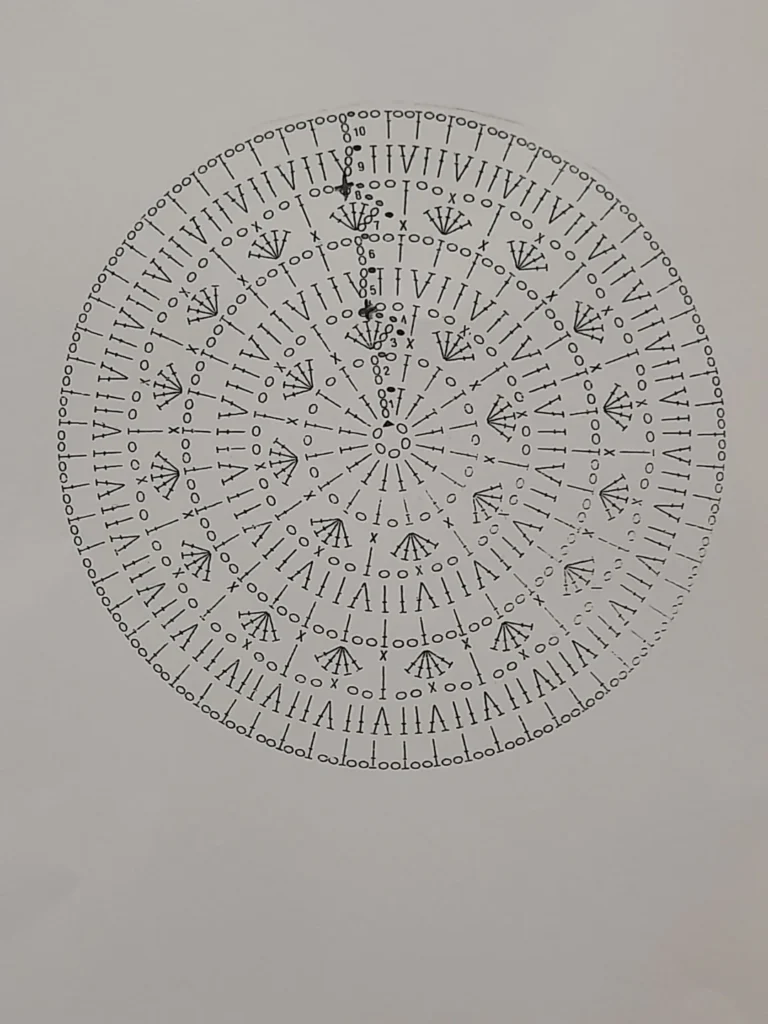 10
9
8
7
6
5
4
3
2